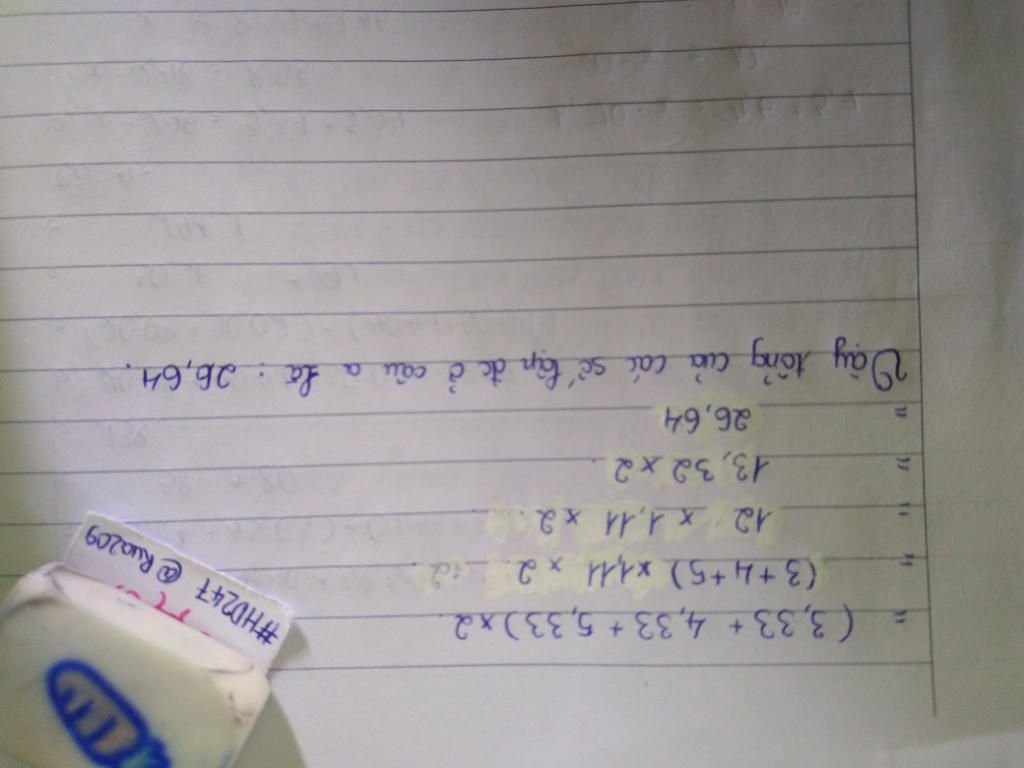 = (3,33 + 4,33 + 5,33) x 2.
= (3+4+5) x 1,11 x 2
= 12 x 1,11 x 2.
= 13,32 x 2.
= 26,64
Vậy tổng của các số lập đc ở câu a là : 26,64.
#HD247 @Rua209